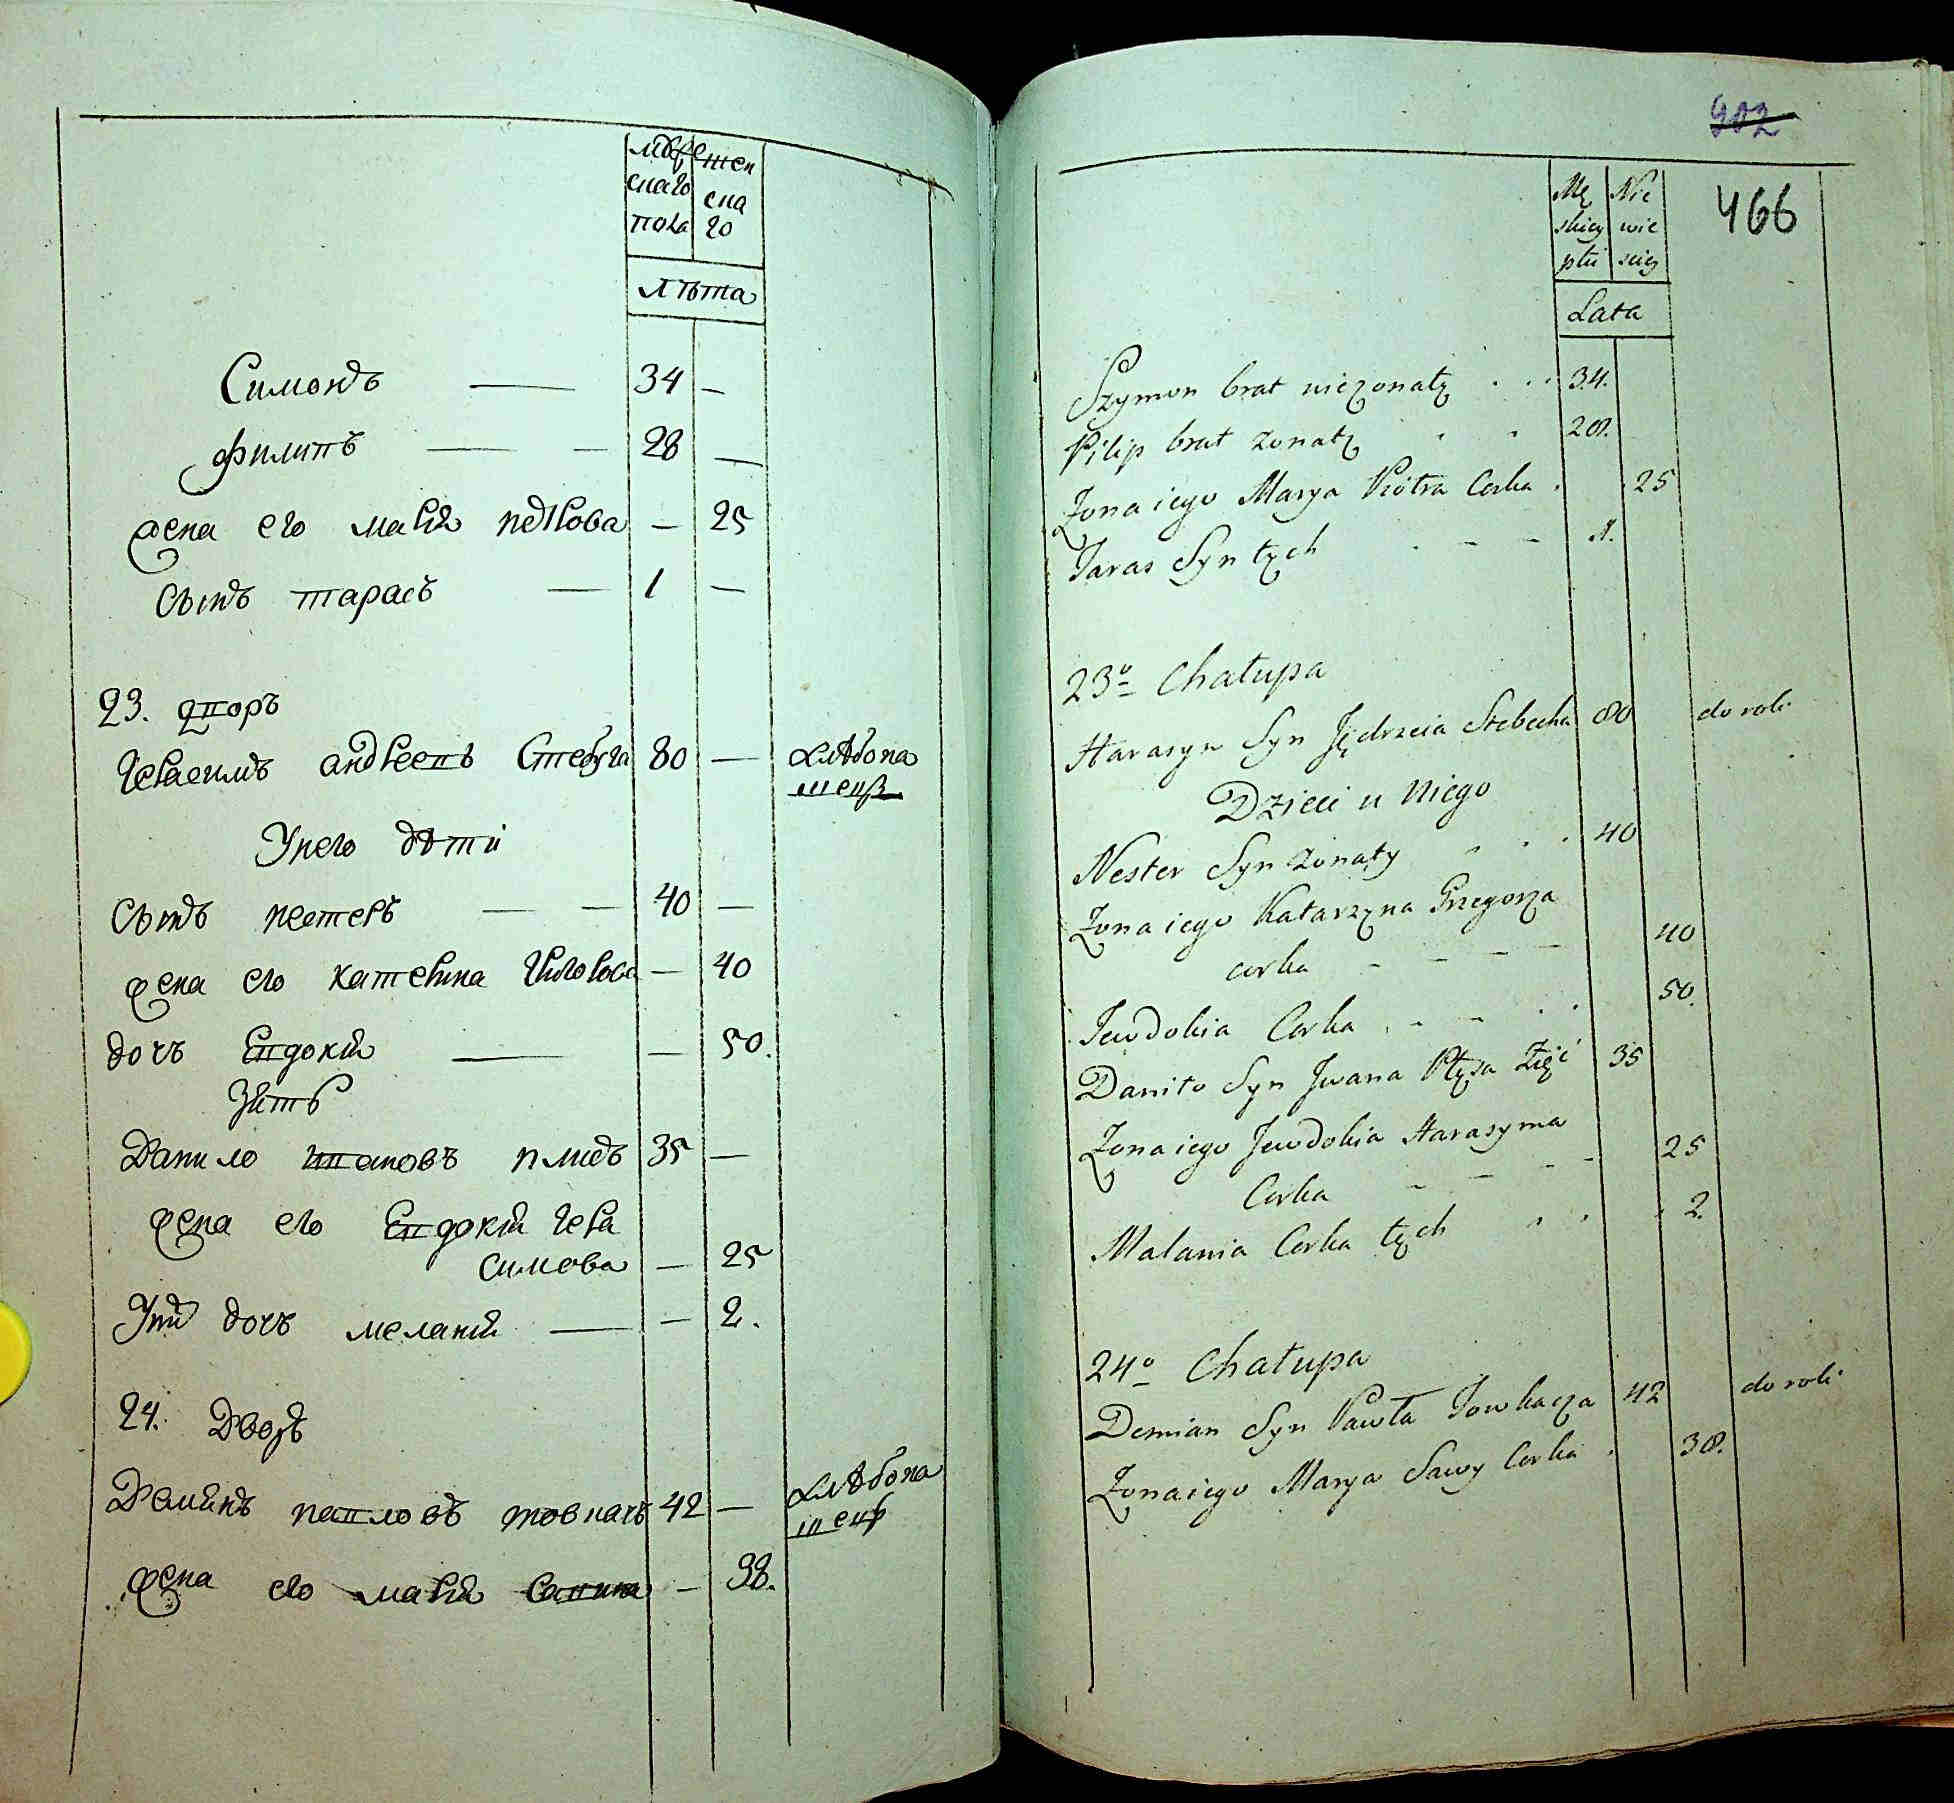 мужеска пола | женска го
лѣта
Симонъ — 34 —
филипъ — — 28 —
жена его марія петрова — 25
сынъ тарасъ — 1 —
23. дворъ
Герасимъ андреевъ Стебуха 80 — хлѣбопа шецъ
У него дѣти
сынъ нестеръ — — 40 —
жена его катерина Григорова — 40
дочъ Евдокія — — 50.
Зять
Данило ивановъ плисъ 35 —
жена его Евдокія Гера
симова — 25
У них дочъ меланія — — 2.
24. Дворъ
Деміянъ павловъ товкачъ 42 — хлѣбопа шецъ
жена его марія савина — 38.
902
466
Mę skiey płci | Nie wie sciey
Lata
Szymon brat nieżonaty . . . 34.
Pilip brat żonaty . . 28.
Żona iego Marya Piotra Corka . . 25
Taras Syn tych . - - 1.
23o Chałupa
Harasym Syn Jędrzeia Stebucha 80 do roli
Dzieci u niego
Nester Syn żonaty . . . 40
Żona iego Katarzyna Grzegorza
corka - - - - 40
Jewdokia Corka . - - . . 50.
Daniło Syn Jwana Płysa Zięć 35
Żona iego Jewdokia Harasyma
Corka - - - - 25
Malania Corka tych . . . 2.
24o Chałupa
Demian Syn Pawła Towkacza 42 do roli
Żona iego Marya Sawy Corka . 38.